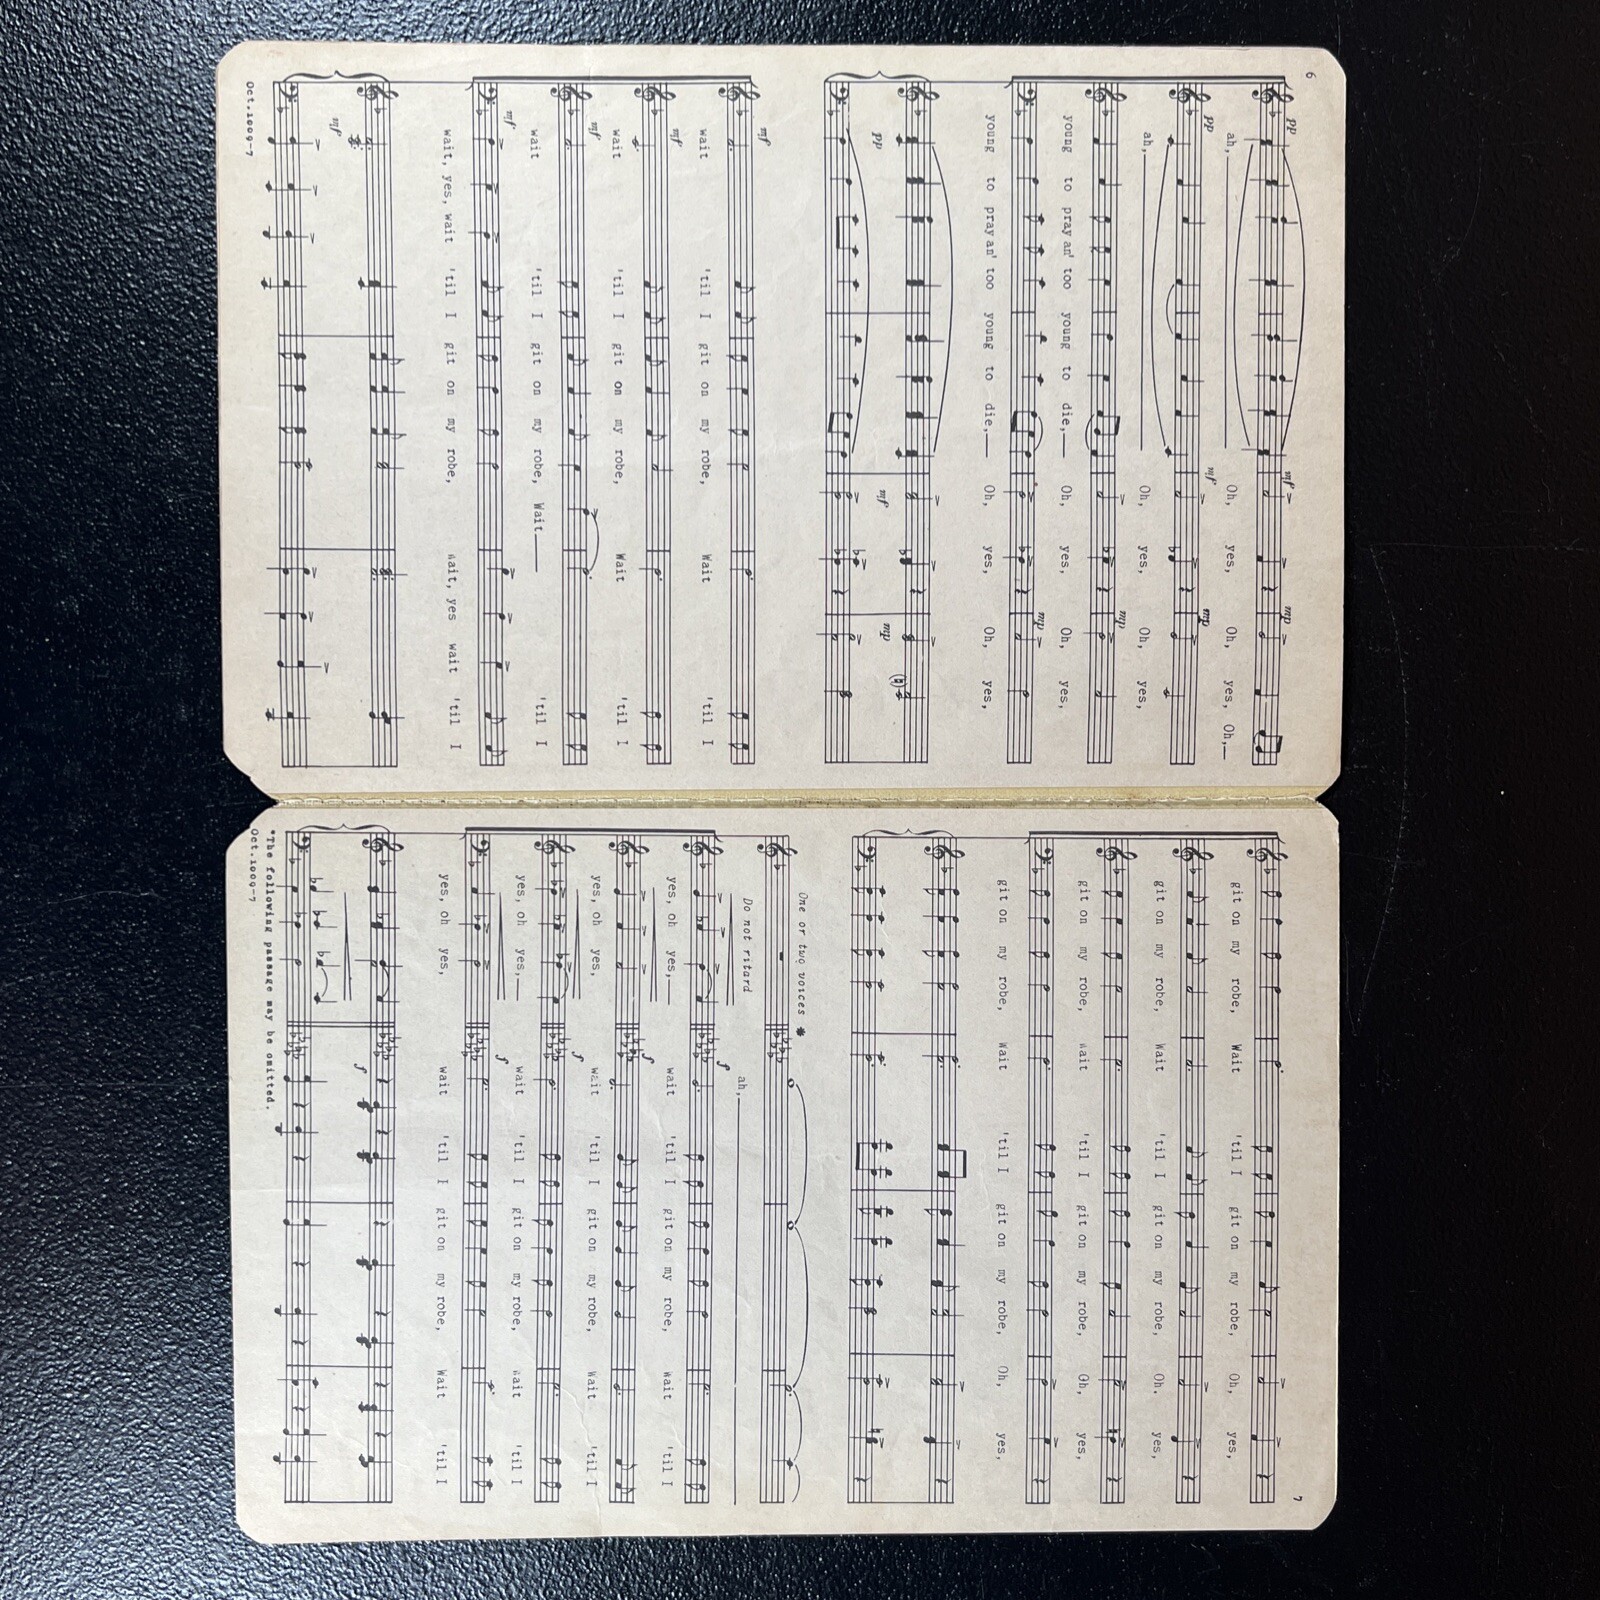 6
pp
mf
mp
ah, Oh, yes, Oh, yes, Oh,
pp
mf
mp
ah, Oh, yes, Oh, yes,
mp
young to pray an' too young to die, Oh, yes, Oh, yes,
mp
young to pray an' too young to die, Oh, yes, Oh, yes,
pp
mf
mp
mf
wait 'til I git on my robe, Wait 'til I
mf
wait 'til I git on my robe, Wait 'til I
mf
wait 'til I git on my robe, Wait 'til I
mf
wait, yes, wait 'til I git on my robe, Wait, yes wait 'til I
mf
Oct.1009-7
7
git on my robe, Wait 'til I git on my robe, Oh, yes,
git on my robe, Wait 'til I git on my robe, Oh, yes,
git on my robe, Wait 'til I git on my robe, Oh, yes,
git on my robe, Wait 'til I git on my robe, Oh, yes,
One or two voices *
ah,
Do not ritard
f
yes, oh yes, wait 'til I git on my robe, Wait 'til I
f
yes, oh yes, wait 'til I git on my robe, Wait 'til I
f
yes, oh yes, wait 'til I git on my robe, Wait 'til I
f
yes, oh yes, wait 'til I git on my robe, Wait 'til I
f
*The following passage may be omitted.
Oct.1009-7